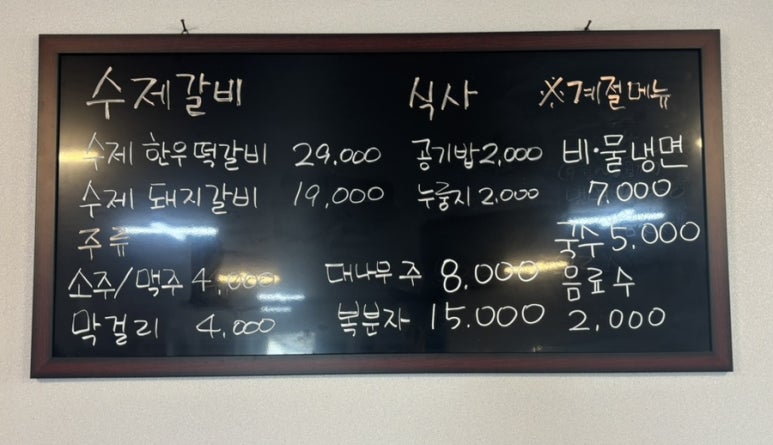 수제갈비 식사 ※계절메뉴
수제 한우떡갈비 29,000 공기밥 2,000 비·물냉면
수제 돼지갈비 19,000 누룽지 2,000 7.000
주류 국수 5.000
소주/맥주 4,000 대나무주 8.000 음료수
막걸리 4,000 복분자 15.000 2,000